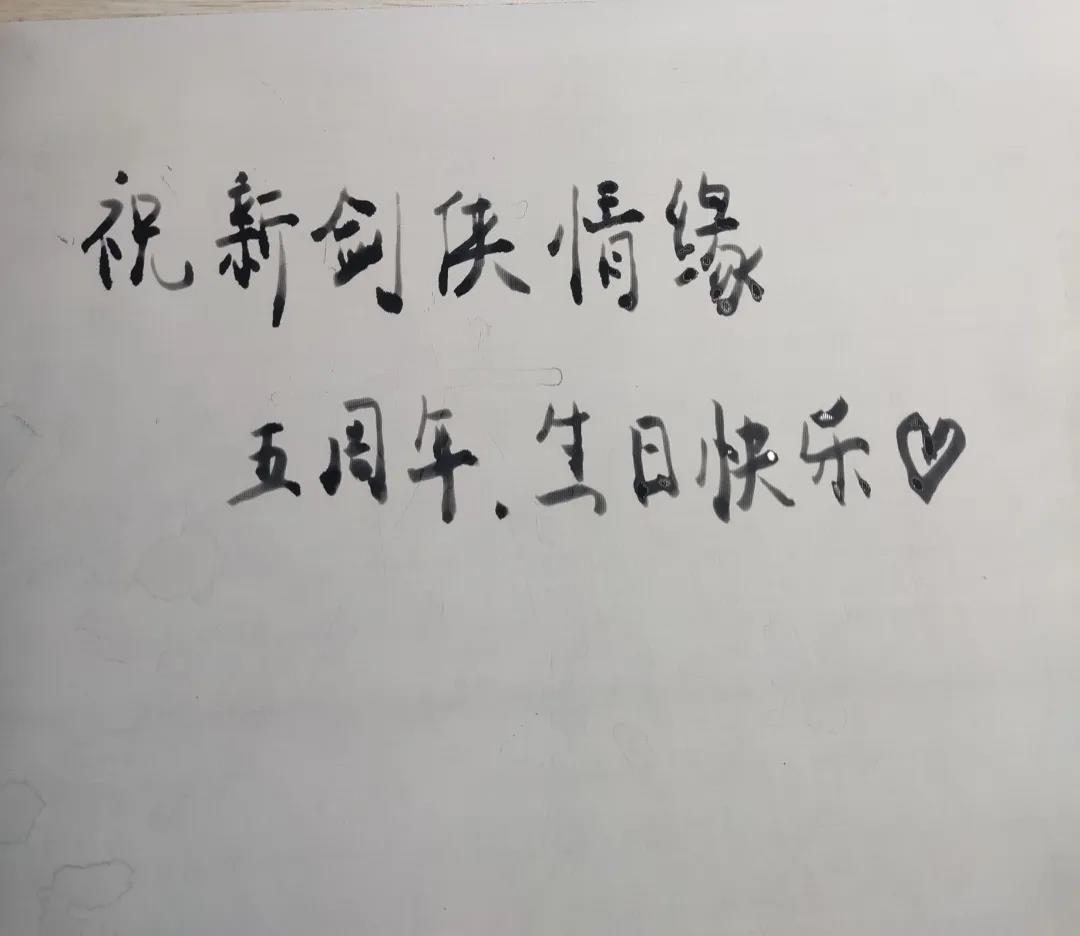 祝新剑侠情缘
五周年、生日快乐♡